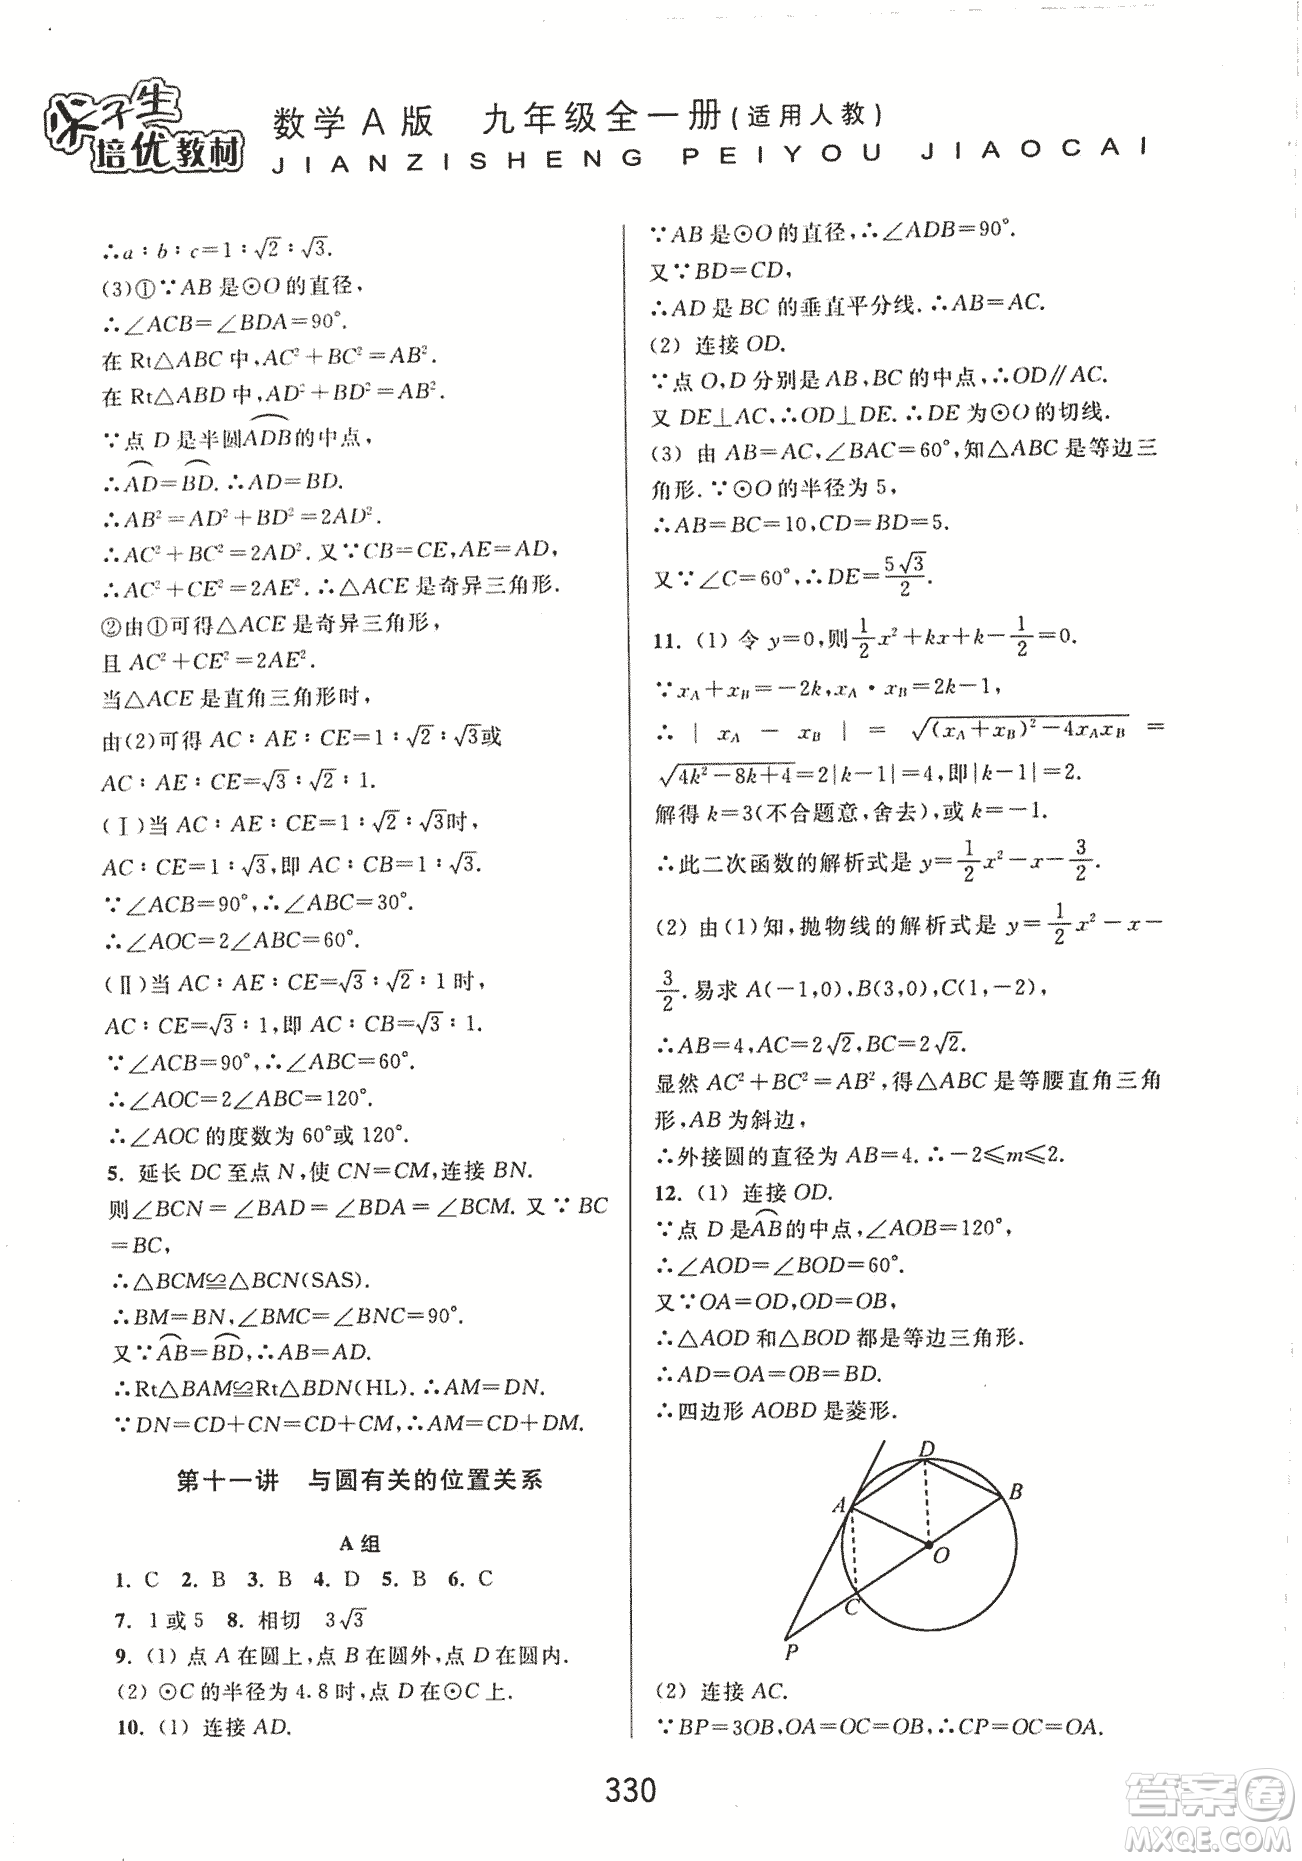 尖子生
培优教材
数学A版 九年级全一册(适用人教)
JIANZISHENG PEIYOU JIAOCAI
∴a∶b∶c=1∶√2∶√3.
(3)①∵AB是⊙O的直径,
∴∠ACB=∠BDA=90°.
在Rt△ABC中,AC²+BC²=AB².
在Rt△ABD中,AD²+BD²=AB².
∵点D是半圆⌒ADB的中点,
∴⌒AD=⌒BD.∴AD=BD.
∴AB²=AD²+BD²=2AD².
∴AC²+BC²=2AD².又∵CB=CE,AE=AD,
∴AC²+CE²=2AE².∴△ACE是奇异三角形.
②由①可得△ACE是奇异三角形,
且AC²+CE²=2AE².
当△ACE是直角三角形时,
由(2)可得AC∶AE∶CE=1∶√2∶√3或
AC∶AE∶CE=√3∶√2∶1.
(Ⅰ)当AC∶AE∶CE=1∶√2∶√3时,
AC∶CE=1∶√3,即AC∶CB=1∶√3.
∵∠ACB=90°,∴∠ABC=30°.
∴∠AOC=2∠ABC=60°.
(Ⅱ)当AC∶AE∶CE=√3∶√2∶1时,
AC∶CE=√3∶1,即AC∶CB=√3∶1.
∵∠ACB=90°,∴∠ABC=60°.
∴∠AOC=2∠ABC=120°.
∴∠AOC的度数为60°或120°.
5. 延长DC至点N,使CN=CM,连接BN.
则∠BCN=∠BAD=∠BDA=∠BCM. 又∵BC
=BC,
∴△BCM≌△BCN(SAS).
∴BM=BN,∠BMC=∠BNC=90°.
又∵⌒AB=⌒BD,∴AB=AD.
∴Rt△BAM≌Rt△BDN(HL).∴AM=DN.
∵DN=CD+CN=CD+CM,∴AM=CD+DM.
第十一讲 与圆有关的位置关系
A组
1. C 2. B 3. B 4. D 5. B 6. C
7. 1或5 8. 相切 3√3
9. (1) 点A在圆上,点B在圆外,点D在圆内.
(2) ⊙C的半径为4.8时,点D在⊙C上.
10. (1) 连接AD.
∵AB是⊙O的直径,∴∠ADB=90°.
又∵BD=CD,
∴AD是BC的垂直平分线.∴AB=AC.
(2) 连接OD.
∵点O,D分别是AB,BC的中点,∴OD∥AC.
又DE⊥AC,∴OD⊥DE.∴DE为⊙O的切线.
(3) 由AB=AC,∠BAC=60°,知△ABC是等边三
角形.∵⊙O的半径为5,
∴AB=BC=10,CD=BD=5.
又∵∠C=60°,∴DE=5√3/2.
11. (1) 令y=0,则1/2x²+kx+k-1/2=0.
∵x_A+x_B=-2k,x_A·x_B=2k-1,
∴|x_A-x_B|=√((x_A+x_B)²-4x_Ax_B)=
√(4k²-8k+4)=2|k-1|=4,即|k-1|=2.
解得k=3(不合题意,舍去),或k=-1.
∴此二次函数的解析式是y=1/2x²-x-3/2.
(2) 由(1)知,抛物线的解析式是y=1/2x²-x-
3/2.易求A(-1,0),B(3,0),C(1,-2),
∴AB=4,AC=2√2,BC=2√2.
显然AC²+BC²=AB²,得△ABC是等腰直角三角
形,AB为斜边,
∴外接圆的直径为AB=4.∴-2⩽m⩽2.
12. (1) 连接OD.
∵点D是⌒AB的中点,∠AOB=120°,
∴∠AOD=∠BOD=60°.
又∵OA=OD,OD=OB,
∴△AOD和△BOD都是等边三角形.
∴AD=OA=OB=BD.
∴四边形AOBD是菱形.
D
B
A
O
C
P
(2) 连接AC.
∵BP=3OB,OA=OC=OB,∴CP=OC=OA.
330
答案圈
MXQE.COM